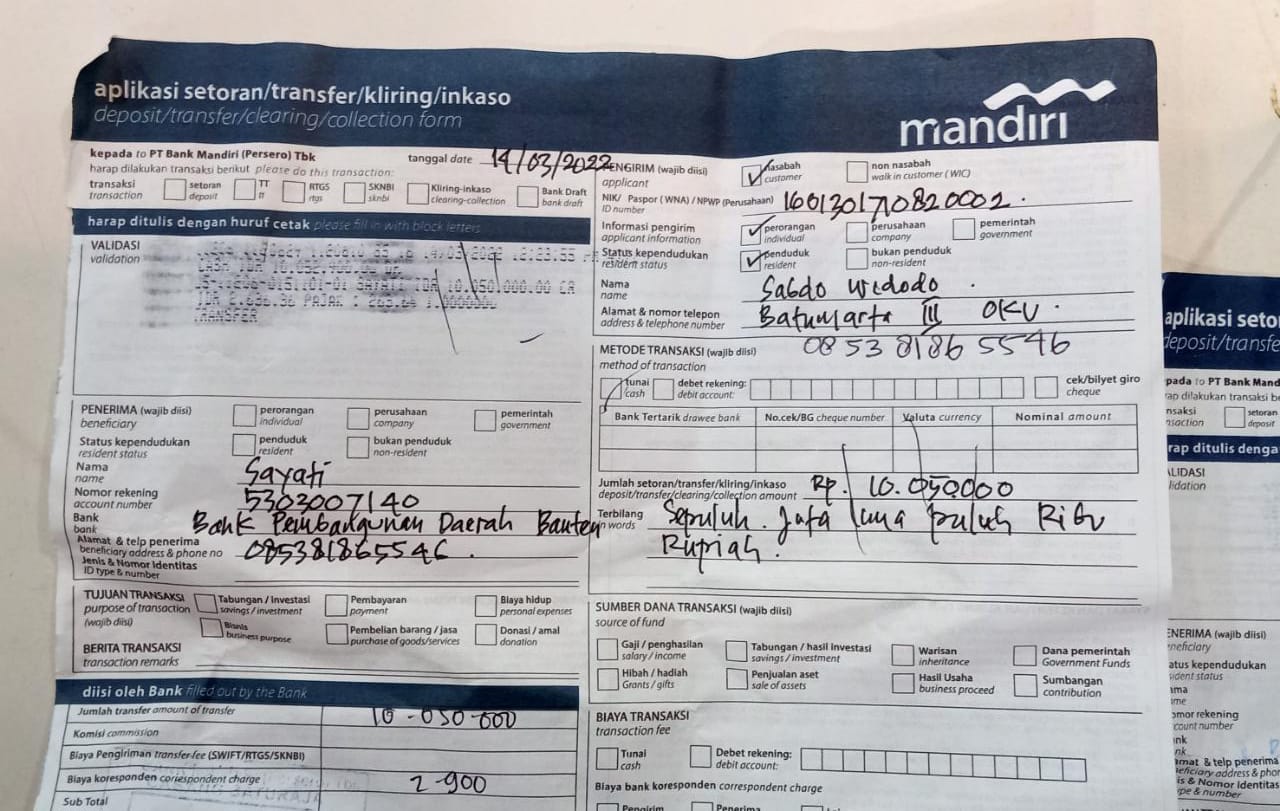 aplikasi setoran/transfer/kliring/inkaso
deposit/transfer/clearing/collection form
mandiri
kepada to PT Bank Mandiri (Persero) Tbk
tanggal date 14/03/2022
harap dilakukan transaksi berikut please do this transaction:
transaksi
transaction
setoran
deposit
TT
tt
RTGS
rtgs
SKNBI
sknbi
Kliring-inkaso
clearing-collection
Bank Draft
bank draft
harap ditulis dengan huruf cetak please fill in with block letters
VALIDASI
validation
12:23:55
10,050,000.00 CR
IDR 2,636.36 PAJAK :
TRANSFER
PENERIMA (wajib diisi)
beneficiary
perorangan
individual
perusahaan
company
pemerintah
government
Status kependudukan
resident status
penduduk
resident
bukan penduduk
non-resident
Nama
name
Sayati
Nomor rekening
account number
5303007140
Bank
bank
Bank Pembangunan Daerah Banten
Alamat & telp penerima
beneficiary address & phone no
085381865546.
Jenis & Nomor Identitas
ID type & number
TUJUAN TRANSAKSI
purpose of transaction
(wajib diisi)
Tabungan / Investasi
savings / investment
Pembayaran
payment
Biaya hidup
personal expenses
Bisnis
business purpose
Pembelian barang / jasa
purchase of goods/services
Donasi / amal
donation
BERITA TRANSAKSI
transaction remarks
diisi oleh Bank filled out by the Bank
Jumlah transfer amount of transfer
10-050-000
Komisi commission
Biaya Pengiriman transfer fee (SWIFT/RTGS/SKNBI)
Biaya koresponden correspondent charge
2-900
Sub Total
PENGIRIM (wajib diisi)
applicant
nasabah
customer
non nasabah
walk in customer (WIC)
NIK/ Paspor (WNA) / NPWP (Perusahaan)
ID number
1601301710820002.
Informasi pengirim
applicant information
perorangan
individual
perusahaan
company
pemerintah
government
Status kependudukan
resident status
penduduk
resident
bukan penduduk
non-resident
Nama
name
Sabdo Widodo.
Alamat & nomor telepon
address & telephone number
Batumarta III OKU.
0853 8186 5546
METODE TRANSAKSI (wajib diisi)
method of transaction
tunai
cash
debet rekening:
debit account:
cek/bilyet giro
cheque
Bank Tertarik drawee bank
No.cek/BG cheque number
Valuta currency
Nominal amount
Jumlah setoran/transfer/kliring/inkaso
deposit/transfer/clearing/collection amount
Rp. 10.050000
Terbilang
in words
Sepuluh. Juta lima puluh Ribu
Rupiah.
SUMBER DANA TRANSAKSI (wajib diisi)
source of fund
Gaji / penghasilan
salary / income
Tabungan / hasil investasi
savings / investment
Warisan
inheritance
Dana pemerintah
Government Funds
Hibah / hadiah
Grants / gifts
Penjualan aset
sale of assets
Hasil Usaha
business proceed
Sumbangan
contribution
BIAYA TRANSAKSI
transaction fee
Tunai
cash
Debet rekening:
debit account:
Biaya bank koresponden correspondent charge
Pengirim
Penerima
aplikasi setor
deposit/transfe
setoran
deposit